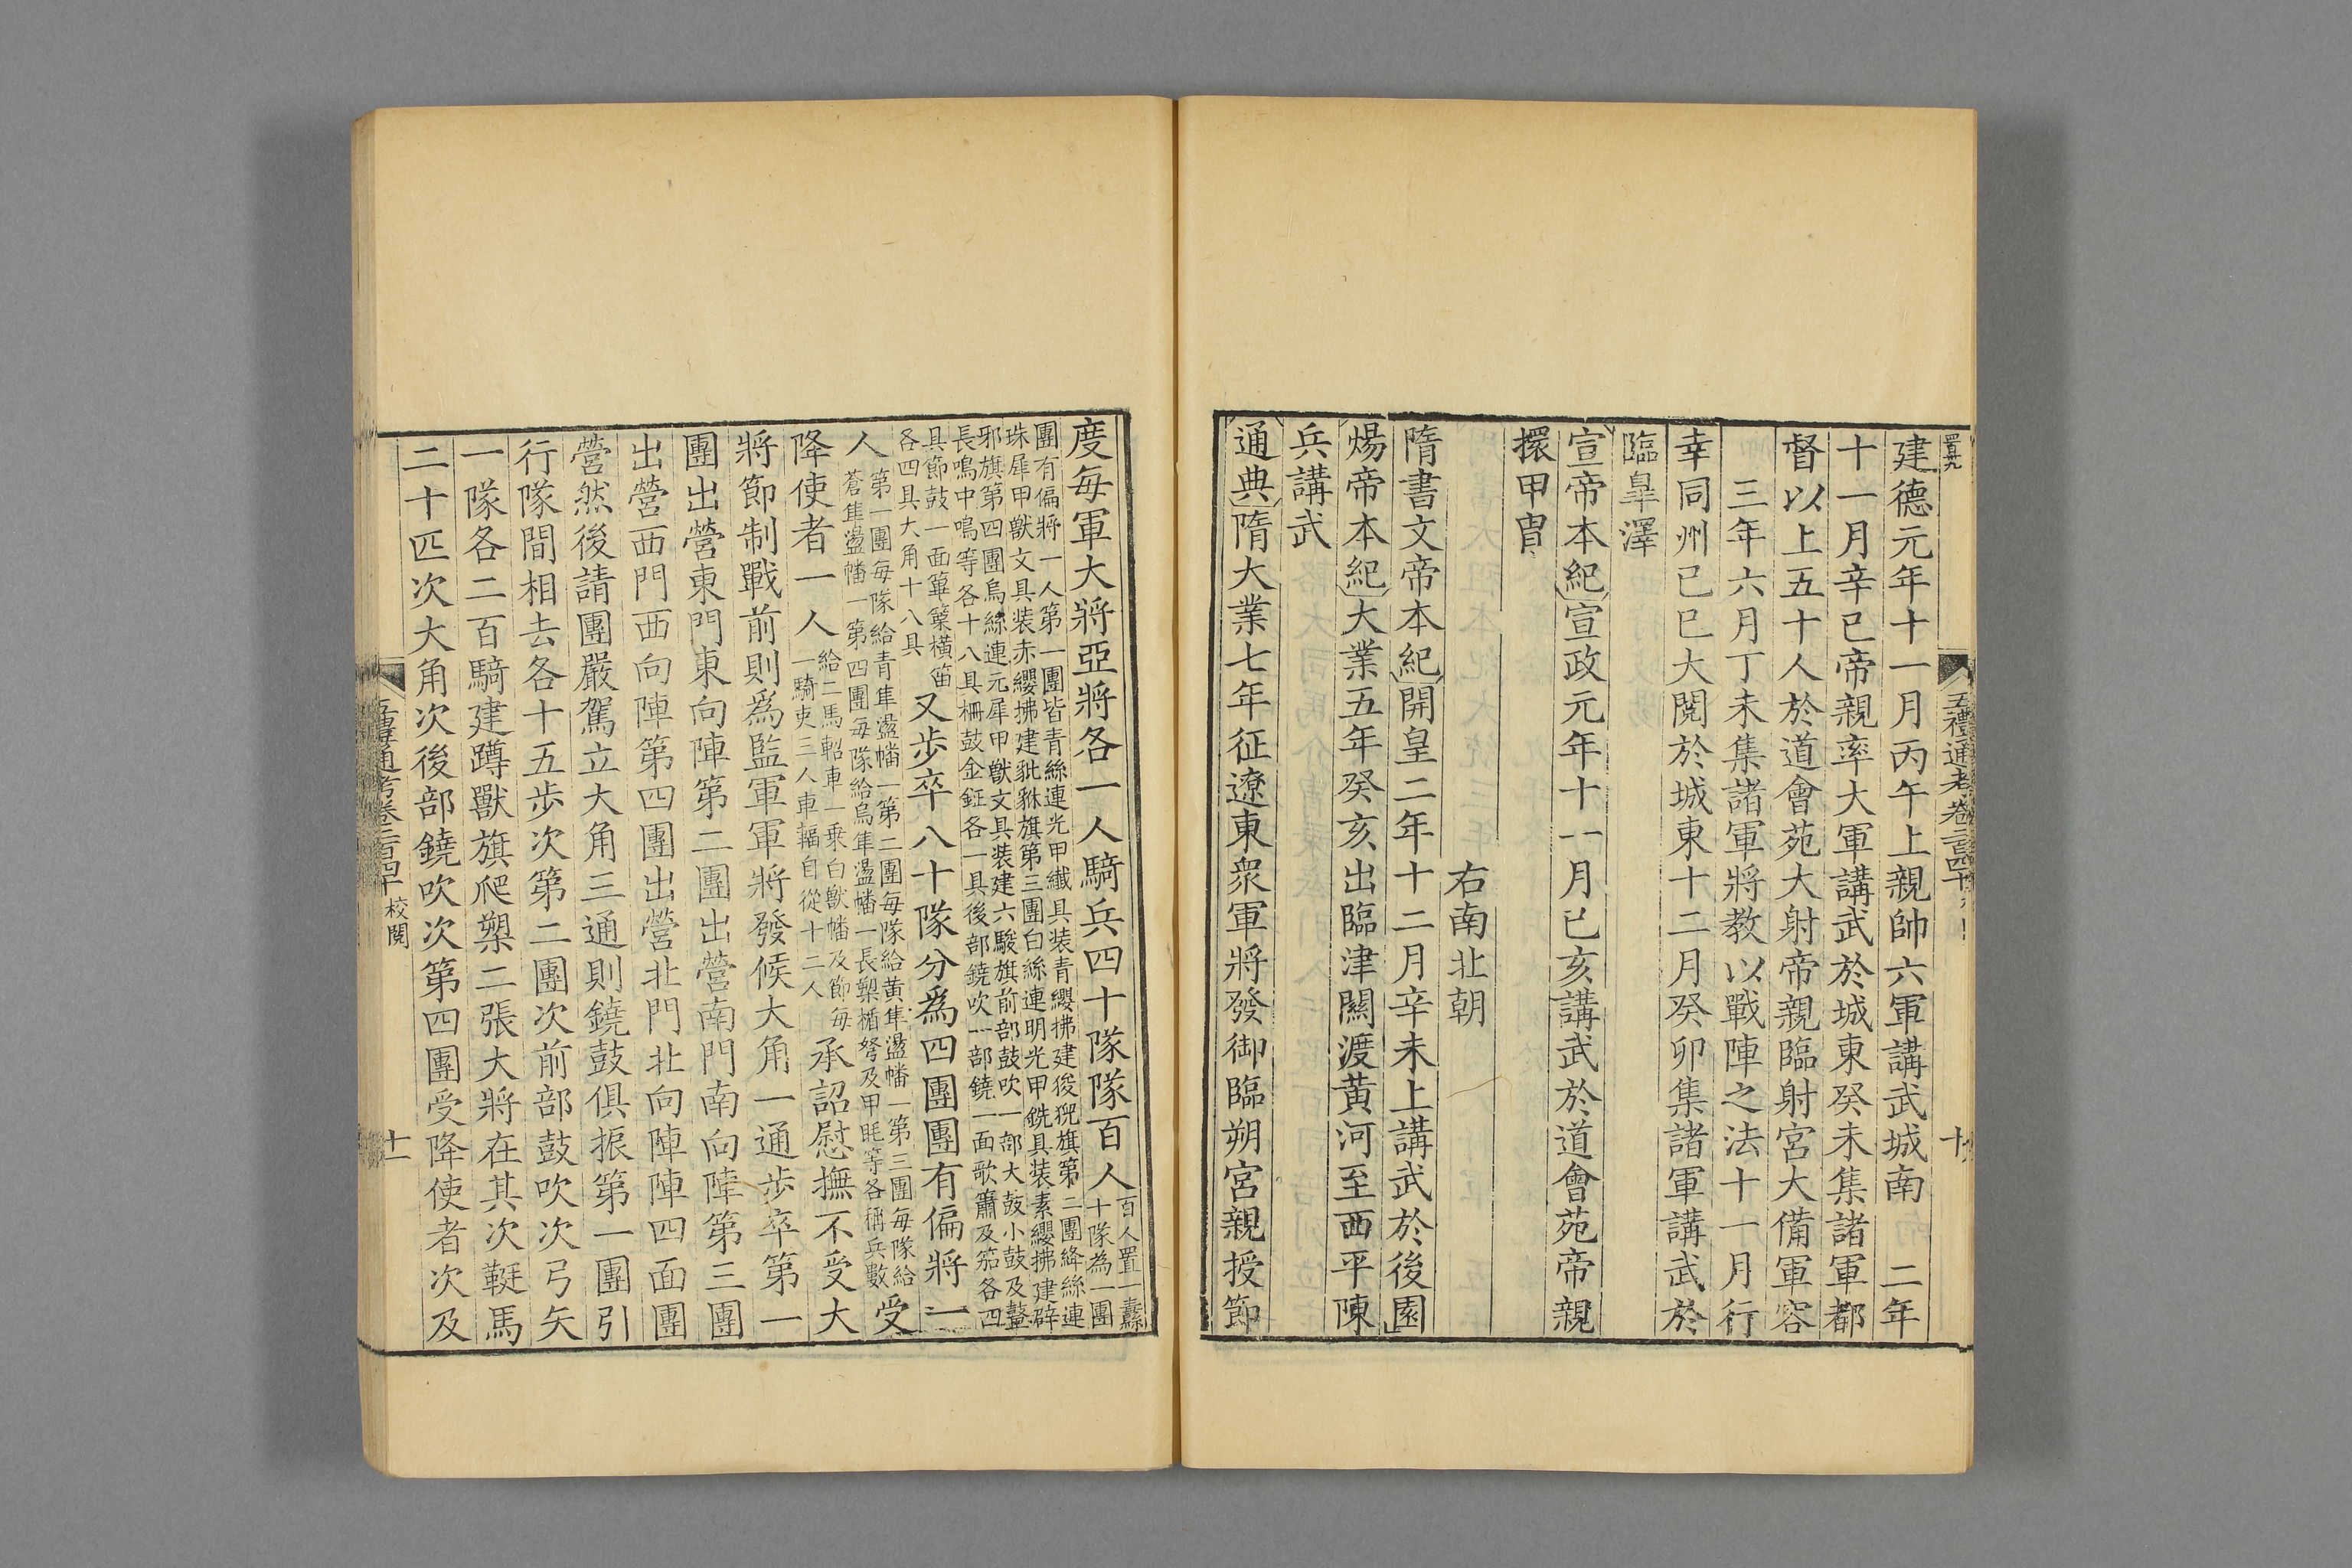 建德元年十一月丙午上親帥六軍講武城南　二年
十一月辛巳帝親率大軍講武於城東癸未集諸軍都
督以上五十人於道會苑大射帝親臨射宮大備軍容
三年六月丁未集諸軍將教以戰陣之法十一月行
幸同州己巳大閱於城東十二月癸卯集諸軍講武於
臨皐澤
宣帝本紀宣政元年十一月己亥講武於道會苑帝親
擐甲冑
右南北朝
隋書文帝本紀開皇二年十二月辛未上講武於後園
煬帝本紀大業五年癸亥出臨津關渡黃河至西平陳
兵講武
通典隋大業七年征遼東衆軍將發御臨朔宮親授節
五禮通考卷二百四十
十
度每軍大將亞將各一人騎兵四十隊隊百人百人置一纛十隊為一團
團有偏將一人第一團皆青絲連光甲鐵具装青纓拂建狻猊旗第二團絳絲連
珠犀甲獸文具装赤纓拂建貔貅旗第三團白絲連明光甲銑具装素纓拂建辟
邪旗第四團烏絲連元犀甲獸文具装建六駮旗前部鼓吹一部大鼓小鼓及鼙
長鳴中鳴等各十八具棡鼓金鉦各一具後部鐃吹一部鐃一面歌簫及笳各四
具節鼓一面篳篥橫笛各四具大角十八具又步卒八十隊分爲四團團有偏將一
人第一團每隊給青隼盪幡一第二團每隊給黃隼盪幡一第三團每隊給蒼隼盪幡一第四團每隊給烏隼盪幡一長槊楯弩及甲毦等各稱兵數受
降使者一人給二馬軺車一乗白獸幡及節每一騎吏三人車輻自從十二人承詔慰撫不受大
將節制戰前則爲監軍軍將發候大角一通步卒第一
團出營東門東向陣第二團出營南門南向陣第三團
出營西門西向陣第四團出營北門北向陣陣四面團
營然後請團嚴駕立大角三通則鐃鼓俱振第一團引
行隊間相去各十五步次第二團次前部鼓吹次弓矢
一隊各二百騎建蹲獸旗爬槊二張大將在其次次鞬馬
二十匹次大角次後部鐃吹次第四團受降使者次及
五禮通考卷二百四十 校閱
十一